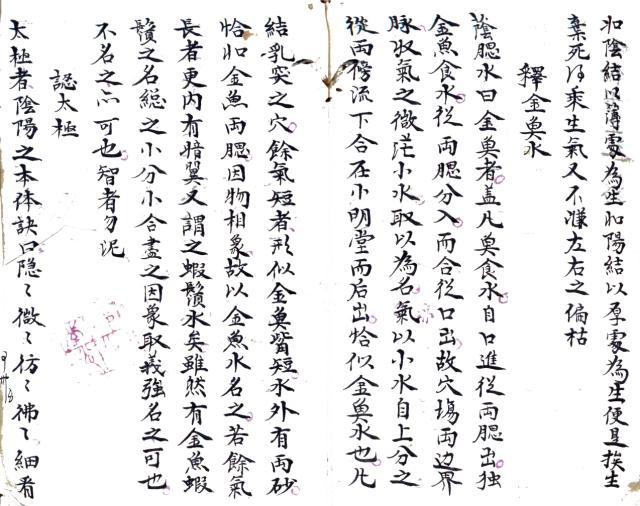 如陰結以薄處為生如陽結以厚處為生便是挨生
棄死得乘生氣又不嫌左右之偏枯
釋金魚水
蔭腮水曰金魚者蓋凡魚食水自口進從兩腮出独
金魚食水從兩腮分入而合從口出故穴塲両边界
脉收氣之微茫小水取以為名氣以小水自上分之
從両傍流下合在小明堂而后出恰似金魚水也凡
結乳突之穴餘氣短者形似金魚當短水外有両砂
恰如金魚両腮因物相象故以金魚水名之若餘氣
長者更内有暗翼又謂之蝦鬚水矣雖然有金魚蝦
鬚之名総之小分小合盡之因象取義強名之可也
不名之亦可也智者勿泥
認太極
太極者陰陽之本体訣曰隐々微々彷々彿々細看